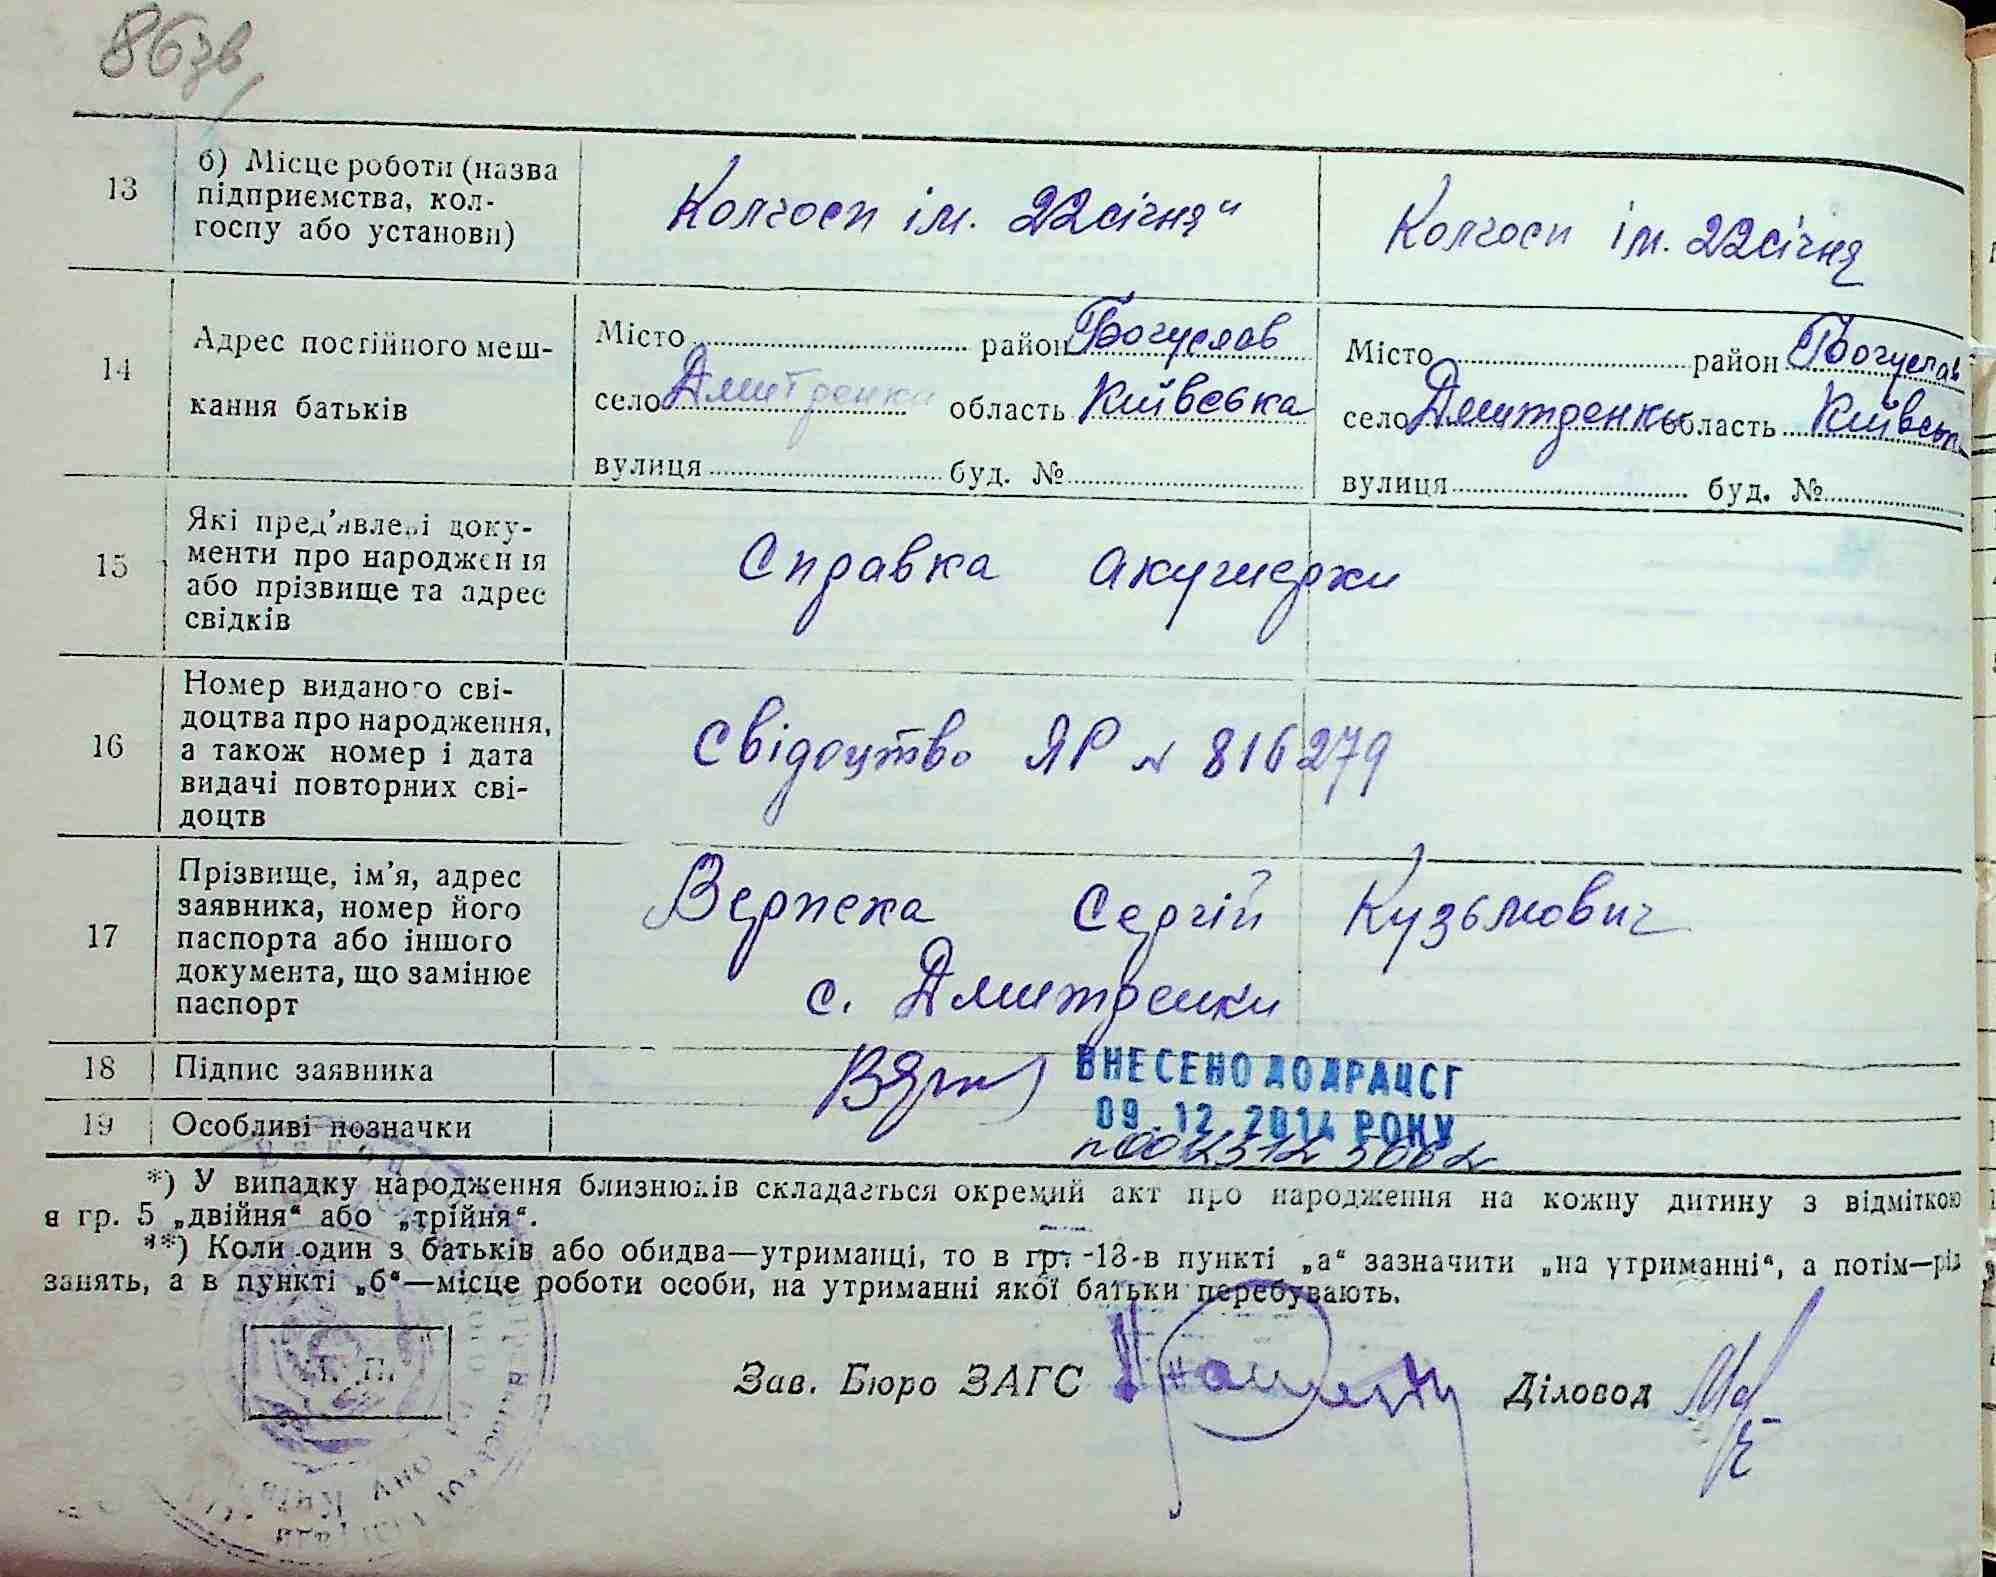 86зв
13
б) Місце роботи (назва
підприємства, кол-
госпу або установи)
Колгосп ім. 22 січня"
Колгосп ім. 22 січня
14
Адрес постійного меш-
кання батьків
Місто район Богуслав
село Дмитренка область Київська
вулиця буд. №
Місто район Богуслав
село Дмитренки область Київська
вулиця буд. №
15
Які пред'явлені доку-
менти про народження
або прізвище та адрес
свідків
Справка акушерки
16
Номер виданого сві-
доцтва про народження,
а також номер і дата
видачі повторних сві-
доцтв
Свідоцтво ЯР № 816279
17
Прізвище, ім'я, адрес
заявника, номер його
паспорта або іншого
документа, що замінює
паспорт
Сергій Кузьмович
с. Дмитренки
18
Підпис заявника
19
Особливі позначки
ВНЕСЕНО ДО ДРАЦСГ
09.12.2014 РОКУ
*) У випадку народження близнюків складається окремий акт про народження на кожну дитину з відміткою
в гр. 5 „двійня“ або „трійня“.
**) Коли один з батьків або обидва—утриманці, то в гр. -13-в пункті „а“ зазначити „на утриманні“, а потім—рід
занять, а в пункті „б“—місце роботи особи, на утриманні якої батьки перебувають.
М. П.
Зав. Бюро ЗАГС
Діловод